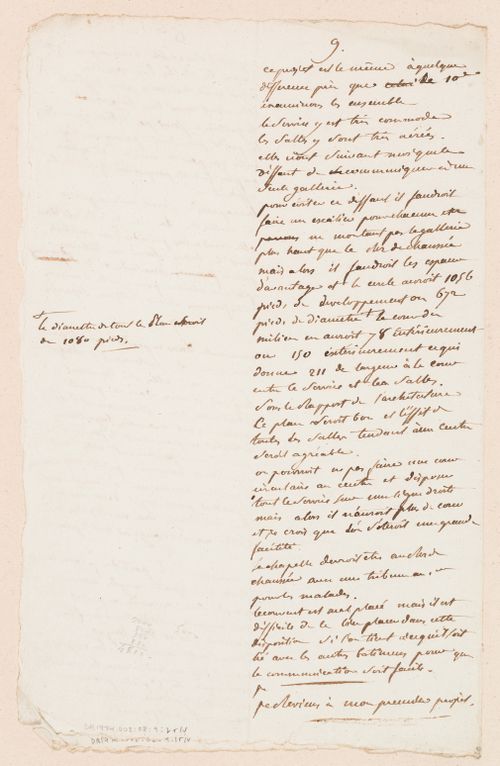 9.
ce projet est le même à quelque
difference près que celui de 10e
examinons les ensemble
le service y est très commode
les salles y sont très aérées.
elles n'ont suivant moi que le
deffaut de communiquer en une
seule gallerie.
pour éviter ce deffaut il faudroit
faire un escalier pour chacune
ne montant pas la gallerie
plus haut que le rez de chaussée
mais alors il faudroit les espacer
davantage et le cercle auroit 1056
pieds de developpement ou 672
pieds de diametre + la cour du
milieu en auroit 78 Intérieurement
ou 150 extérieurement ce qui
donne 211 de largeur à la cour
entre le service et les salles.
Sous le Rapport de l'architecture
Ce plan seroit bon et l'effet de
toutes les salles tendant à un centre
seroit agréable.
on pourroit ne pas faire une cour
circulaire au centre et disposer
tout le service sur une ligne droite
mais alors il n'auroit plus de cour
et je crois que l'on s'oteroit une grande
facilité.
la chapelle devroit etre au rez de
chaussée avec une tribune au
pour les malades.
le couvent est mal placé mais il est
difficile de le bien placer dans cette
disposition si l'on tient à ce qu'il soit
lié avec les autres batimens pour que
la communication soit facile.
je
je Reviens à mon premier projet.
+ le diametre de tout le Plan seroit
de 1080 pieds.